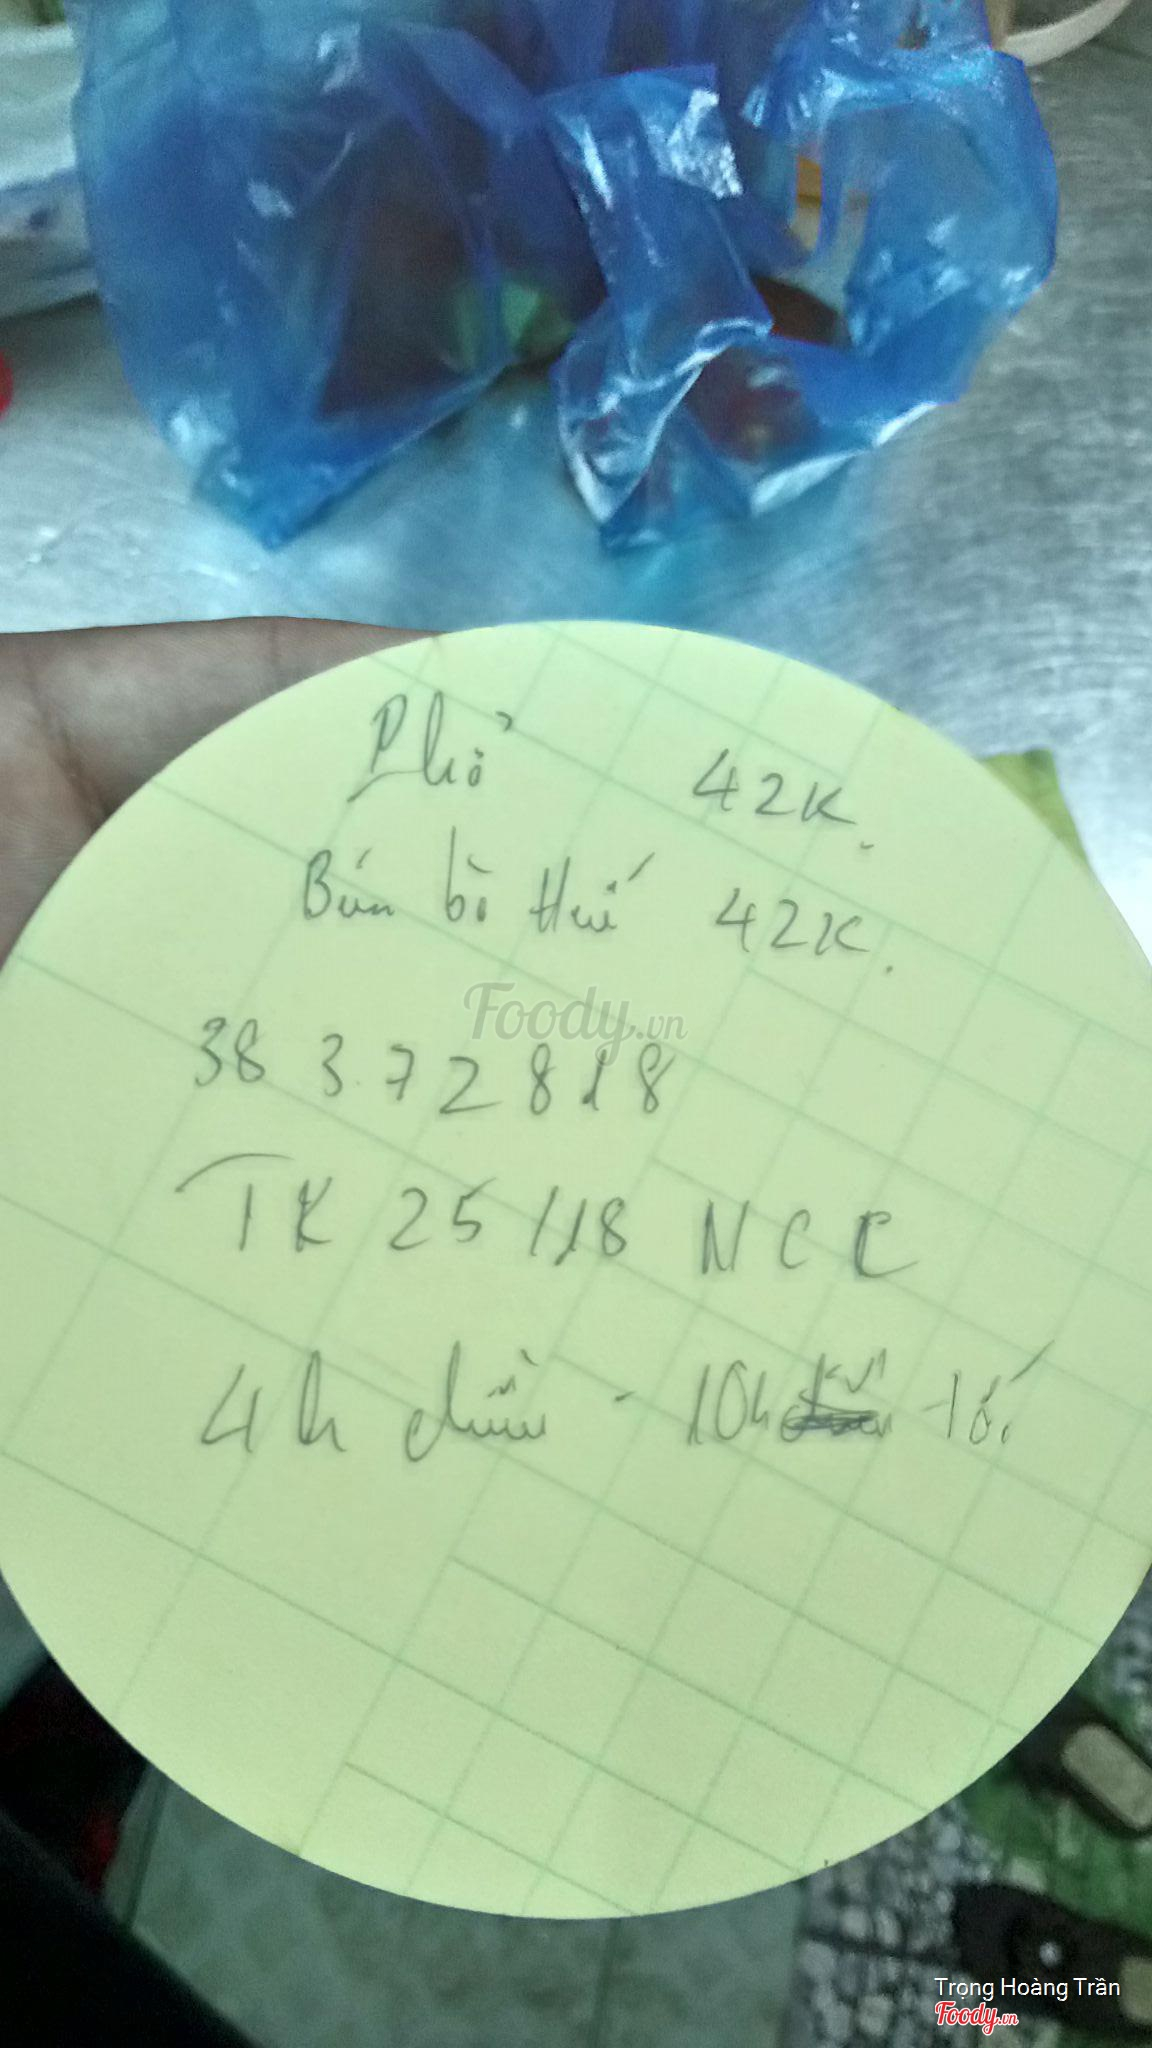 Phở 42K.
Bún bò Huế 42K.
Foody.vn
38 3.72 818
TK 25/18 NCC
4h chiều - 10h tối
Trọng Hoàng Trần
Foody.vn